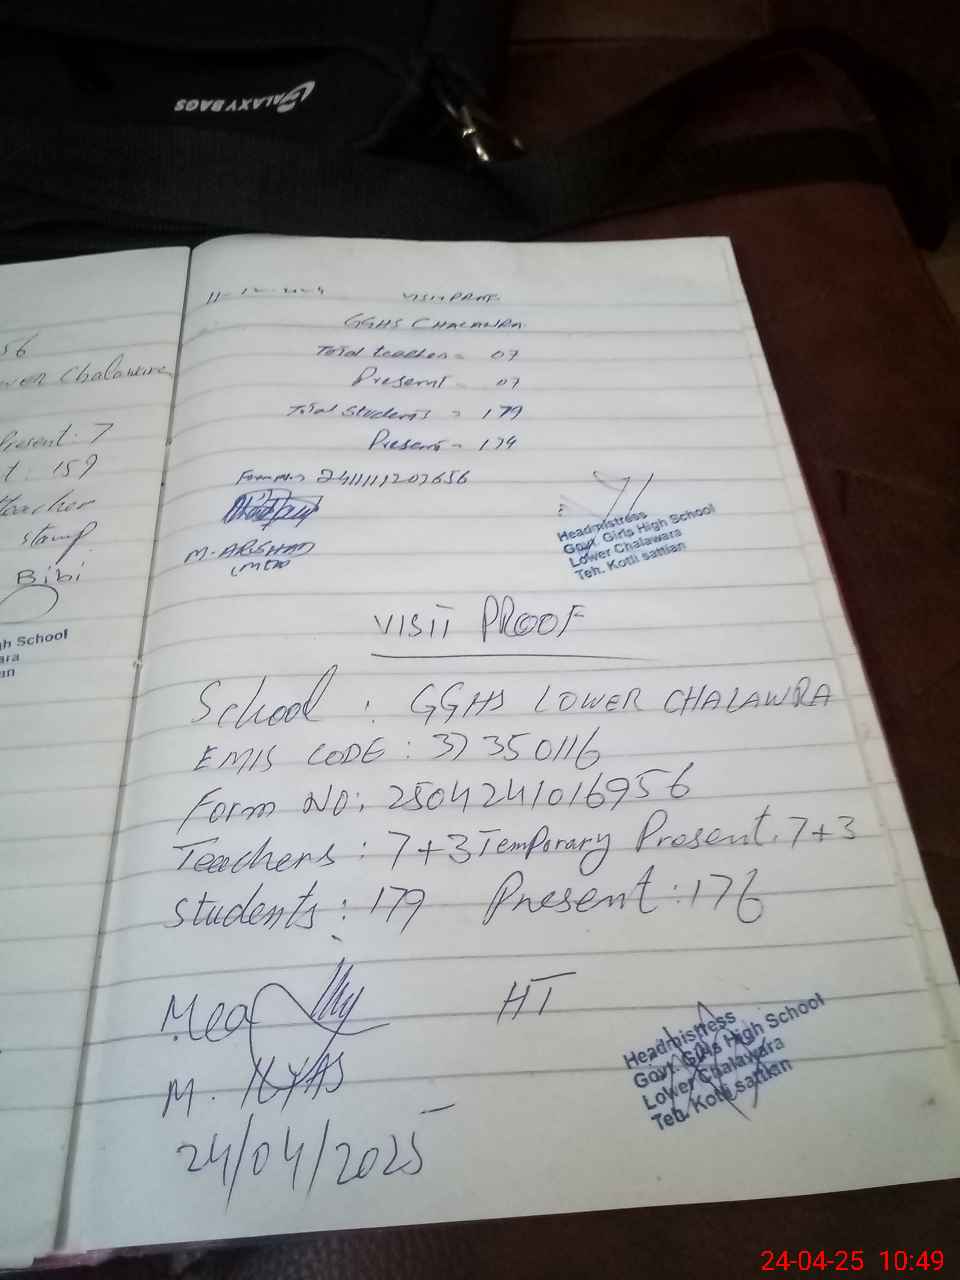 GALAXY BAGS
56
wer Chalawra
Present: 7
t: 159
teacher
stamp
Bibi
gh School
ara
an
VISIT PROOF
GGHS CHALAWRA
Total teacher = 07
Present = 07
Total Students = 179
Present = 174
Form No: 2411111207656
M. ARSHAD
(MEA)
Headmistress
Govt. Girls High School
Lower Chalawara
Teh. Kotli sattian
VISIT PROOF
School : GGHS LOWER CHALAWRA
EMIS CODE : 37350116
Form NO: 2504241016956
Teachers : 7+3 Temporary Present: 7+3
students : 179 Present : 176
Mea HT
M. ILYAS
24/04/2025
Headmistress
Govt. Girls High School
Lower Chalawara
Teh. Kotli sattian
24-04-25 10:49